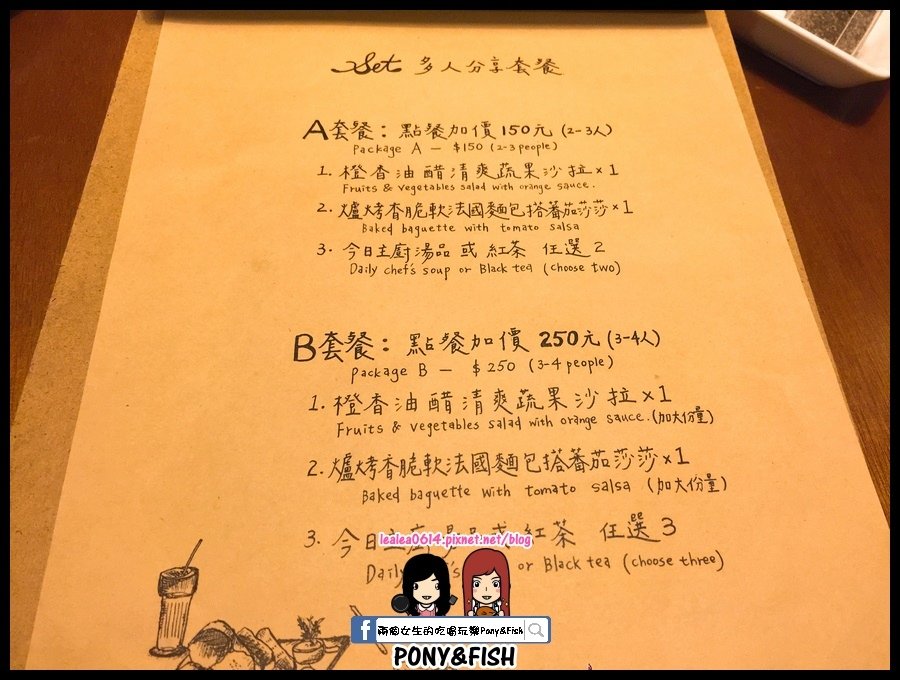 Set 多人分享套餐
A套餐：點餐加價150元(2-3人)
Package A — $150 (2-3 people)
1. 橙香油醋清爽蔬果沙拉×1
Fruits & Vegetables salad with orange sauce.
2. 爐烤香脆軟法國麵包搭蕃茄莎莎×1
Baked baguette with tomato salsa
3. 今日主廚湯品 或 紅茶 任選2
Daily chef's soup or Black tea (choose two)
B套餐：點餐加價250元(3-4人)
Package B — $250 (3-4 people)
1. 橙香油醋清爽蔬果沙拉×1
Fruits & Vegetables salad with orange sauce.(加大份量)
2. 爐烤香脆軟法國麵包搭蕃茄莎莎×1
Baked baguette with tomato salsa (加大份量)
3. 今日主廚湯品或紅茶 任選3
lealea0614.pixnet.net/blog
Daily or Black tea (choose three)
f 兩個女生的吃喝玩樂Pony&Fish
PONY&FISH